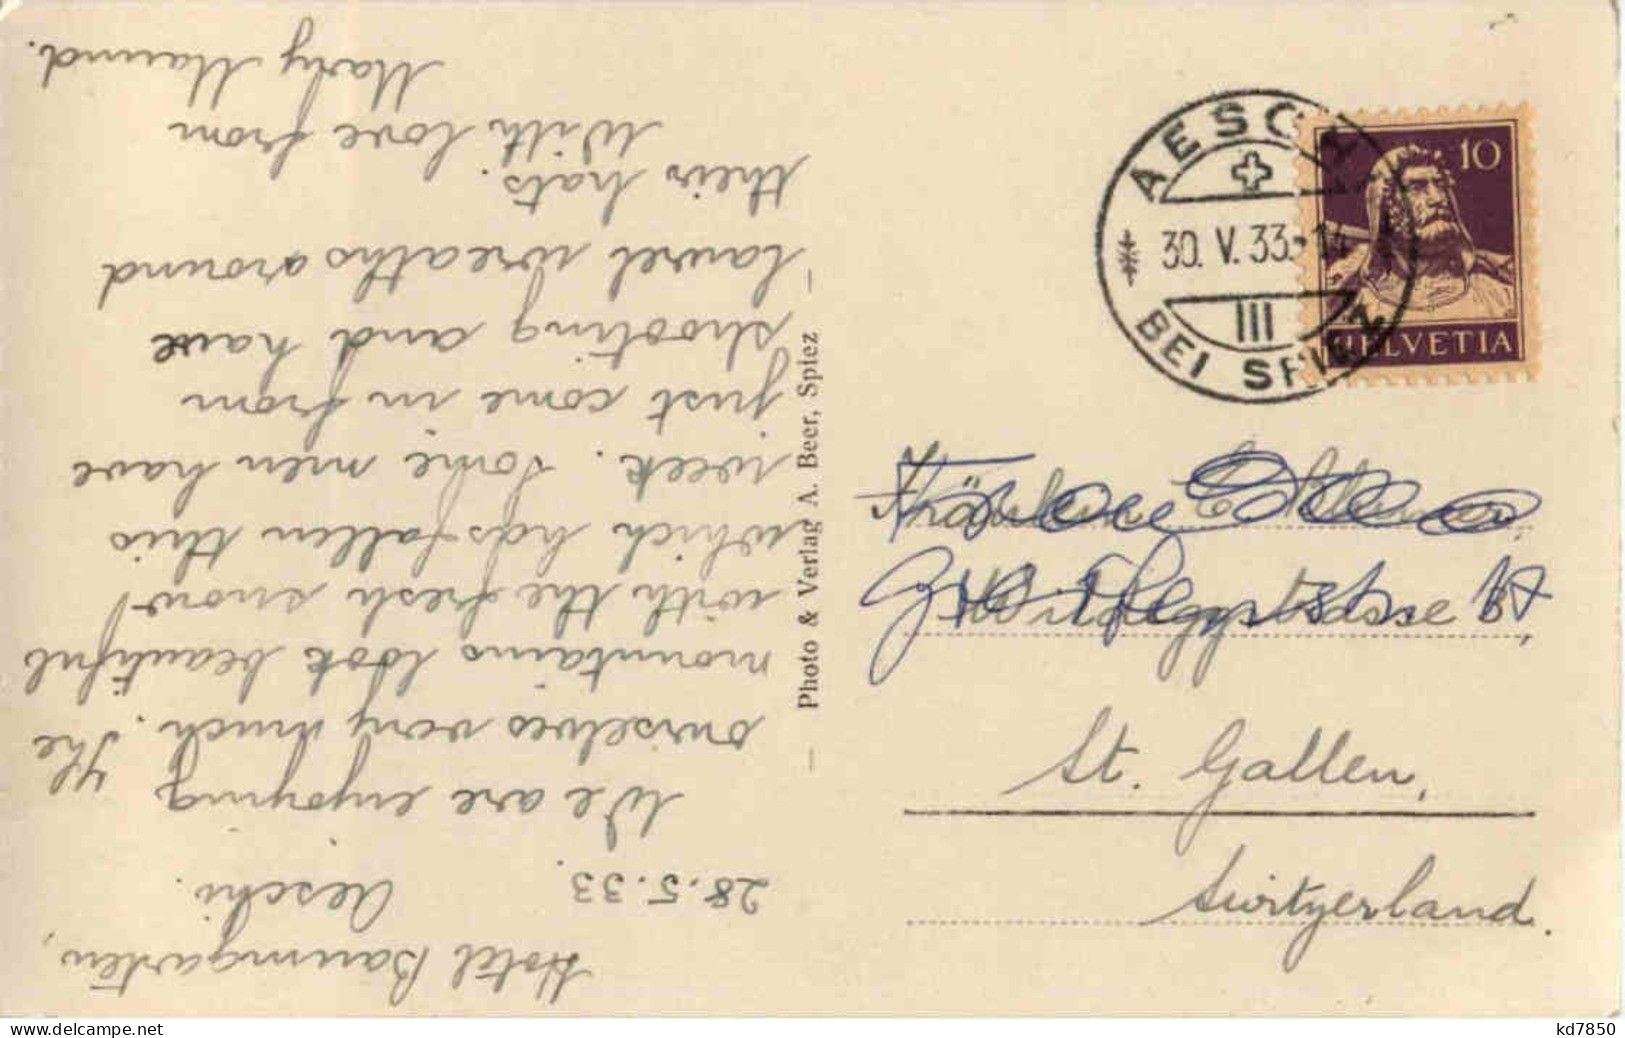 Hotel Baumgarten,
Aeschi.
28.5.33
We are enjoying
ourselves very much. The
mountains look beautiful
with the fresh snow
which has fallen this
week. Some men have
just come in from
shooting and have
laurel wreaths around
their hats.
With love from
Mary Maund.
Photo & Verlag A. Beer, Spiez
AESCHI
30. V. 33
BEI SPIEZ
III
10
HELVETIA
Fräulein
St. Gallen,
Switzerland.
delcampe.net
kd7850